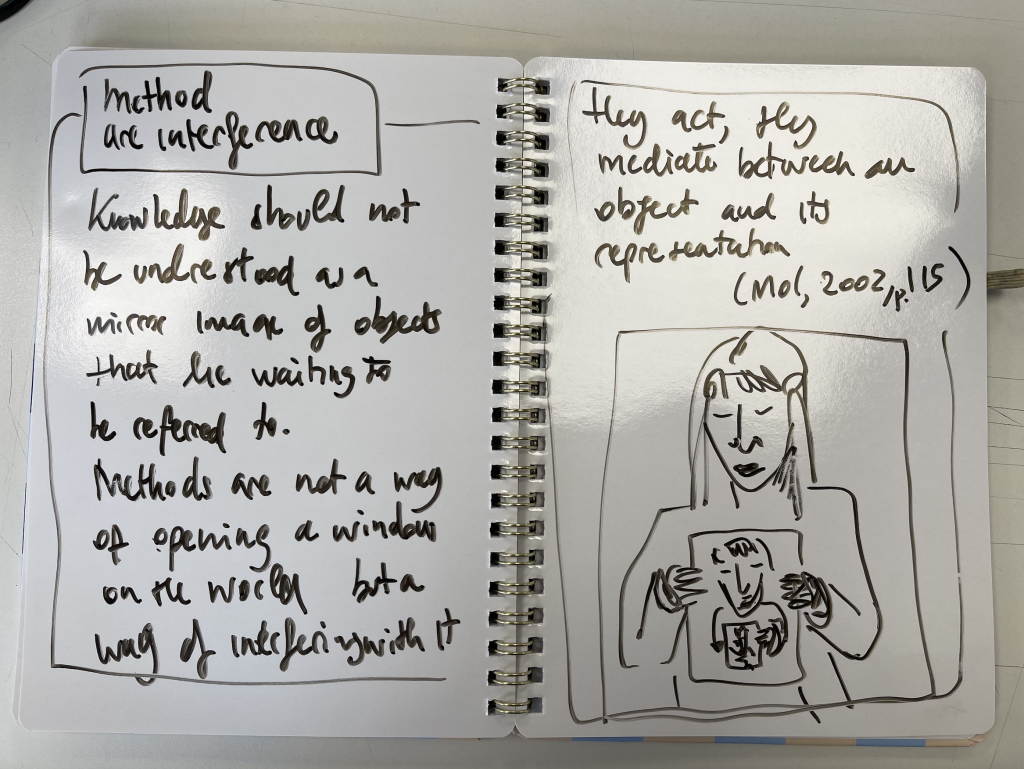 Method
are interference
Knowledge should not
be understood as a
mirror image of objects
that lie waiting to
be referred to.
Methods are not a way
of opening a window
on the world but a
way of interfering with it
They act, they
mediate between an
object and its
representation
(Mol, 2002, p.115)